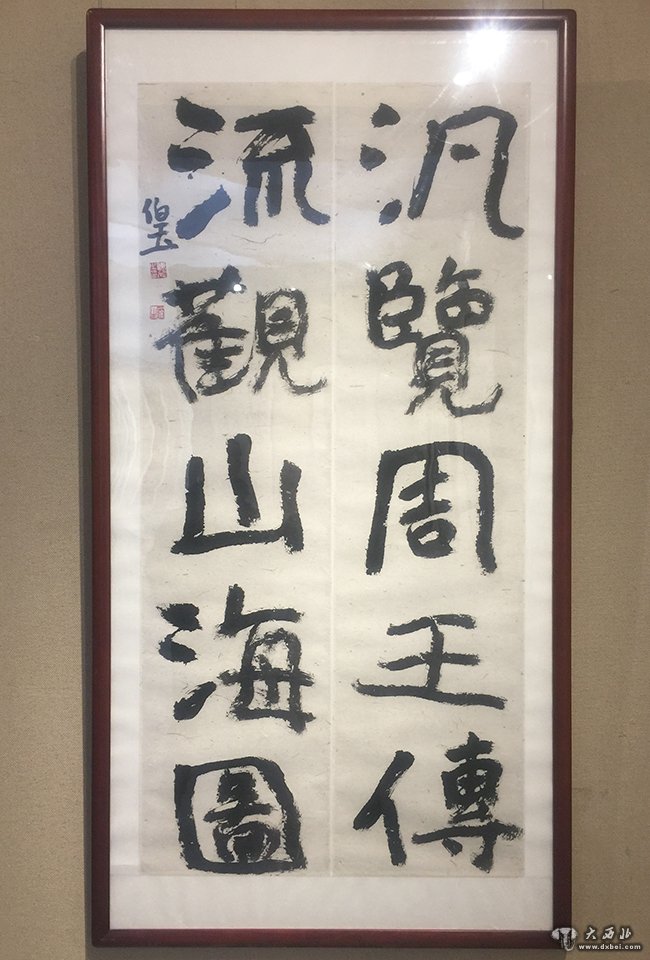 汎覽周王傳
流觀山海圖
大西北
www.dxbei.com